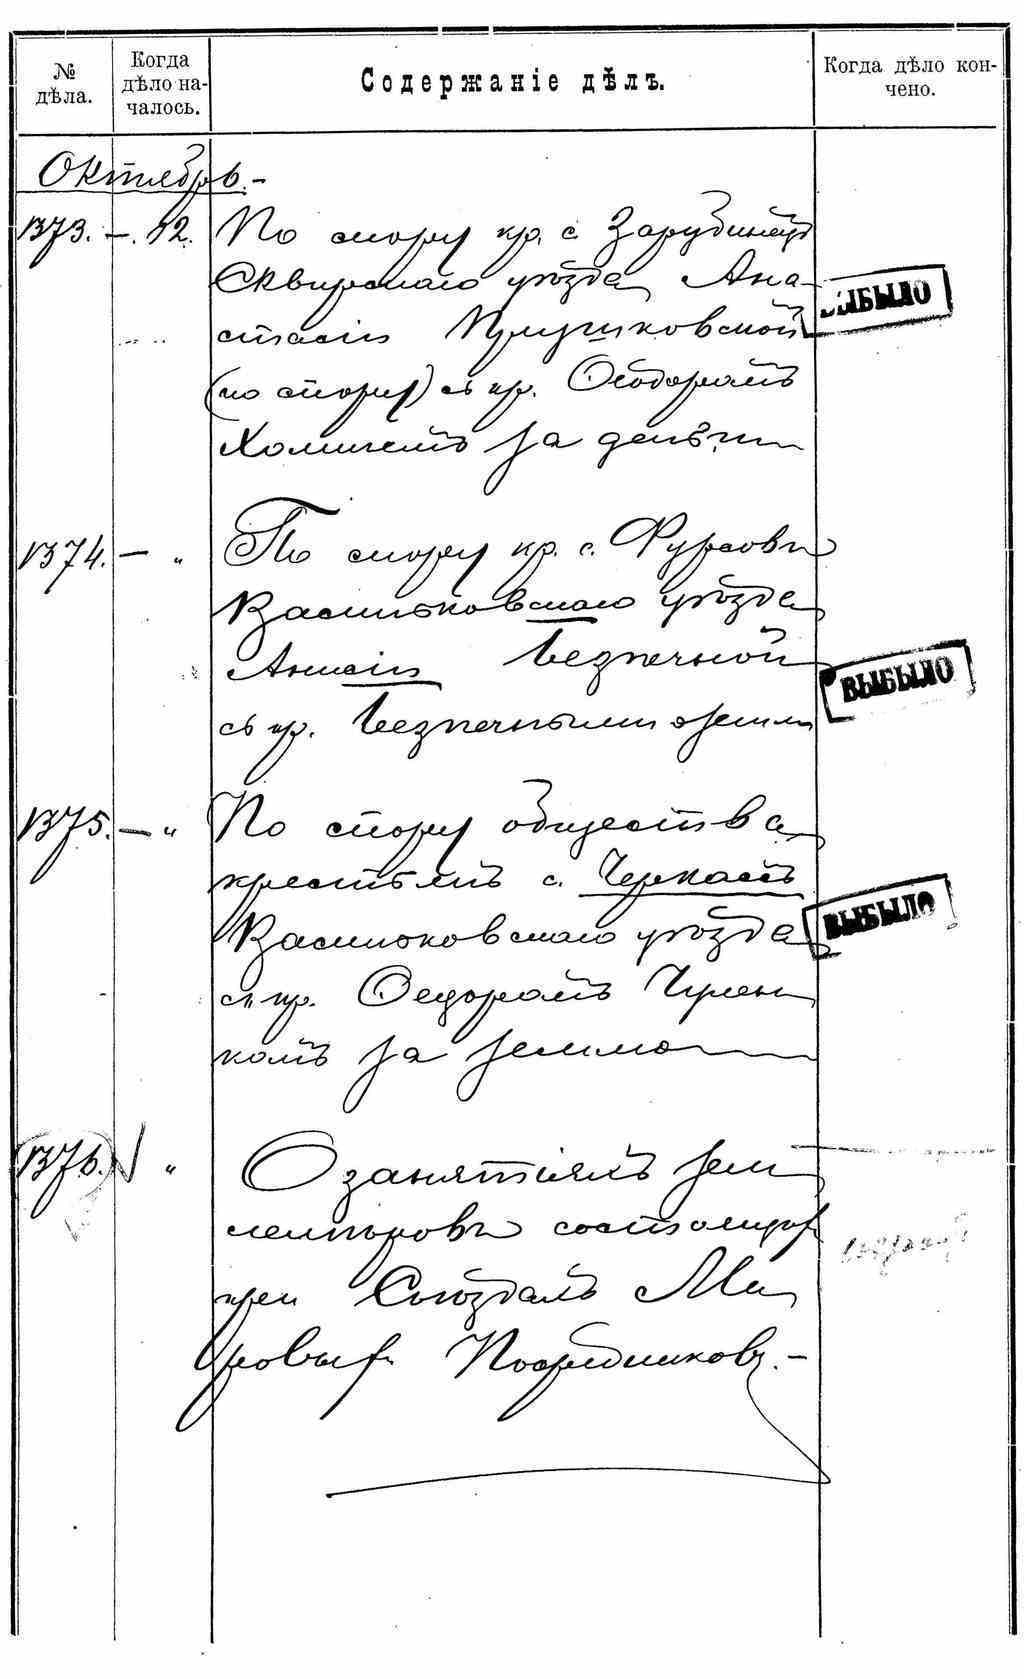 № дѣла.
Когда дѣло началось.
Содержаніе дѣлъ.
Когда дѣло кончено.
Октябрь.-
1373. -. 12. По спору кр. с. Зарубинецъ
Сквирскаго уѣзда Ана-
ВЫБЫЛО
стасіи
(по спору) съ кр. Ѳеодоромъ
Хомичемъ за деньги
1374. - „ По спору кр. с. Фурсовъ
Васильковскаго уѣзда
Анисіи Безпечной
ВЫБЫЛО
съ кр. Безпечными о земли
1375. - „ По спору общества
крестьянъ с. Черкасъ
Васильковскаго уѣзда
ВЫБЫЛО
съ кр. Ѳедоромъ
комъ за землю
1376. „ О занятіяхъ зем
лемѣровъ состоящихъ
при Съѣздахъ Ми
ровыхъ Посредниковъ.-